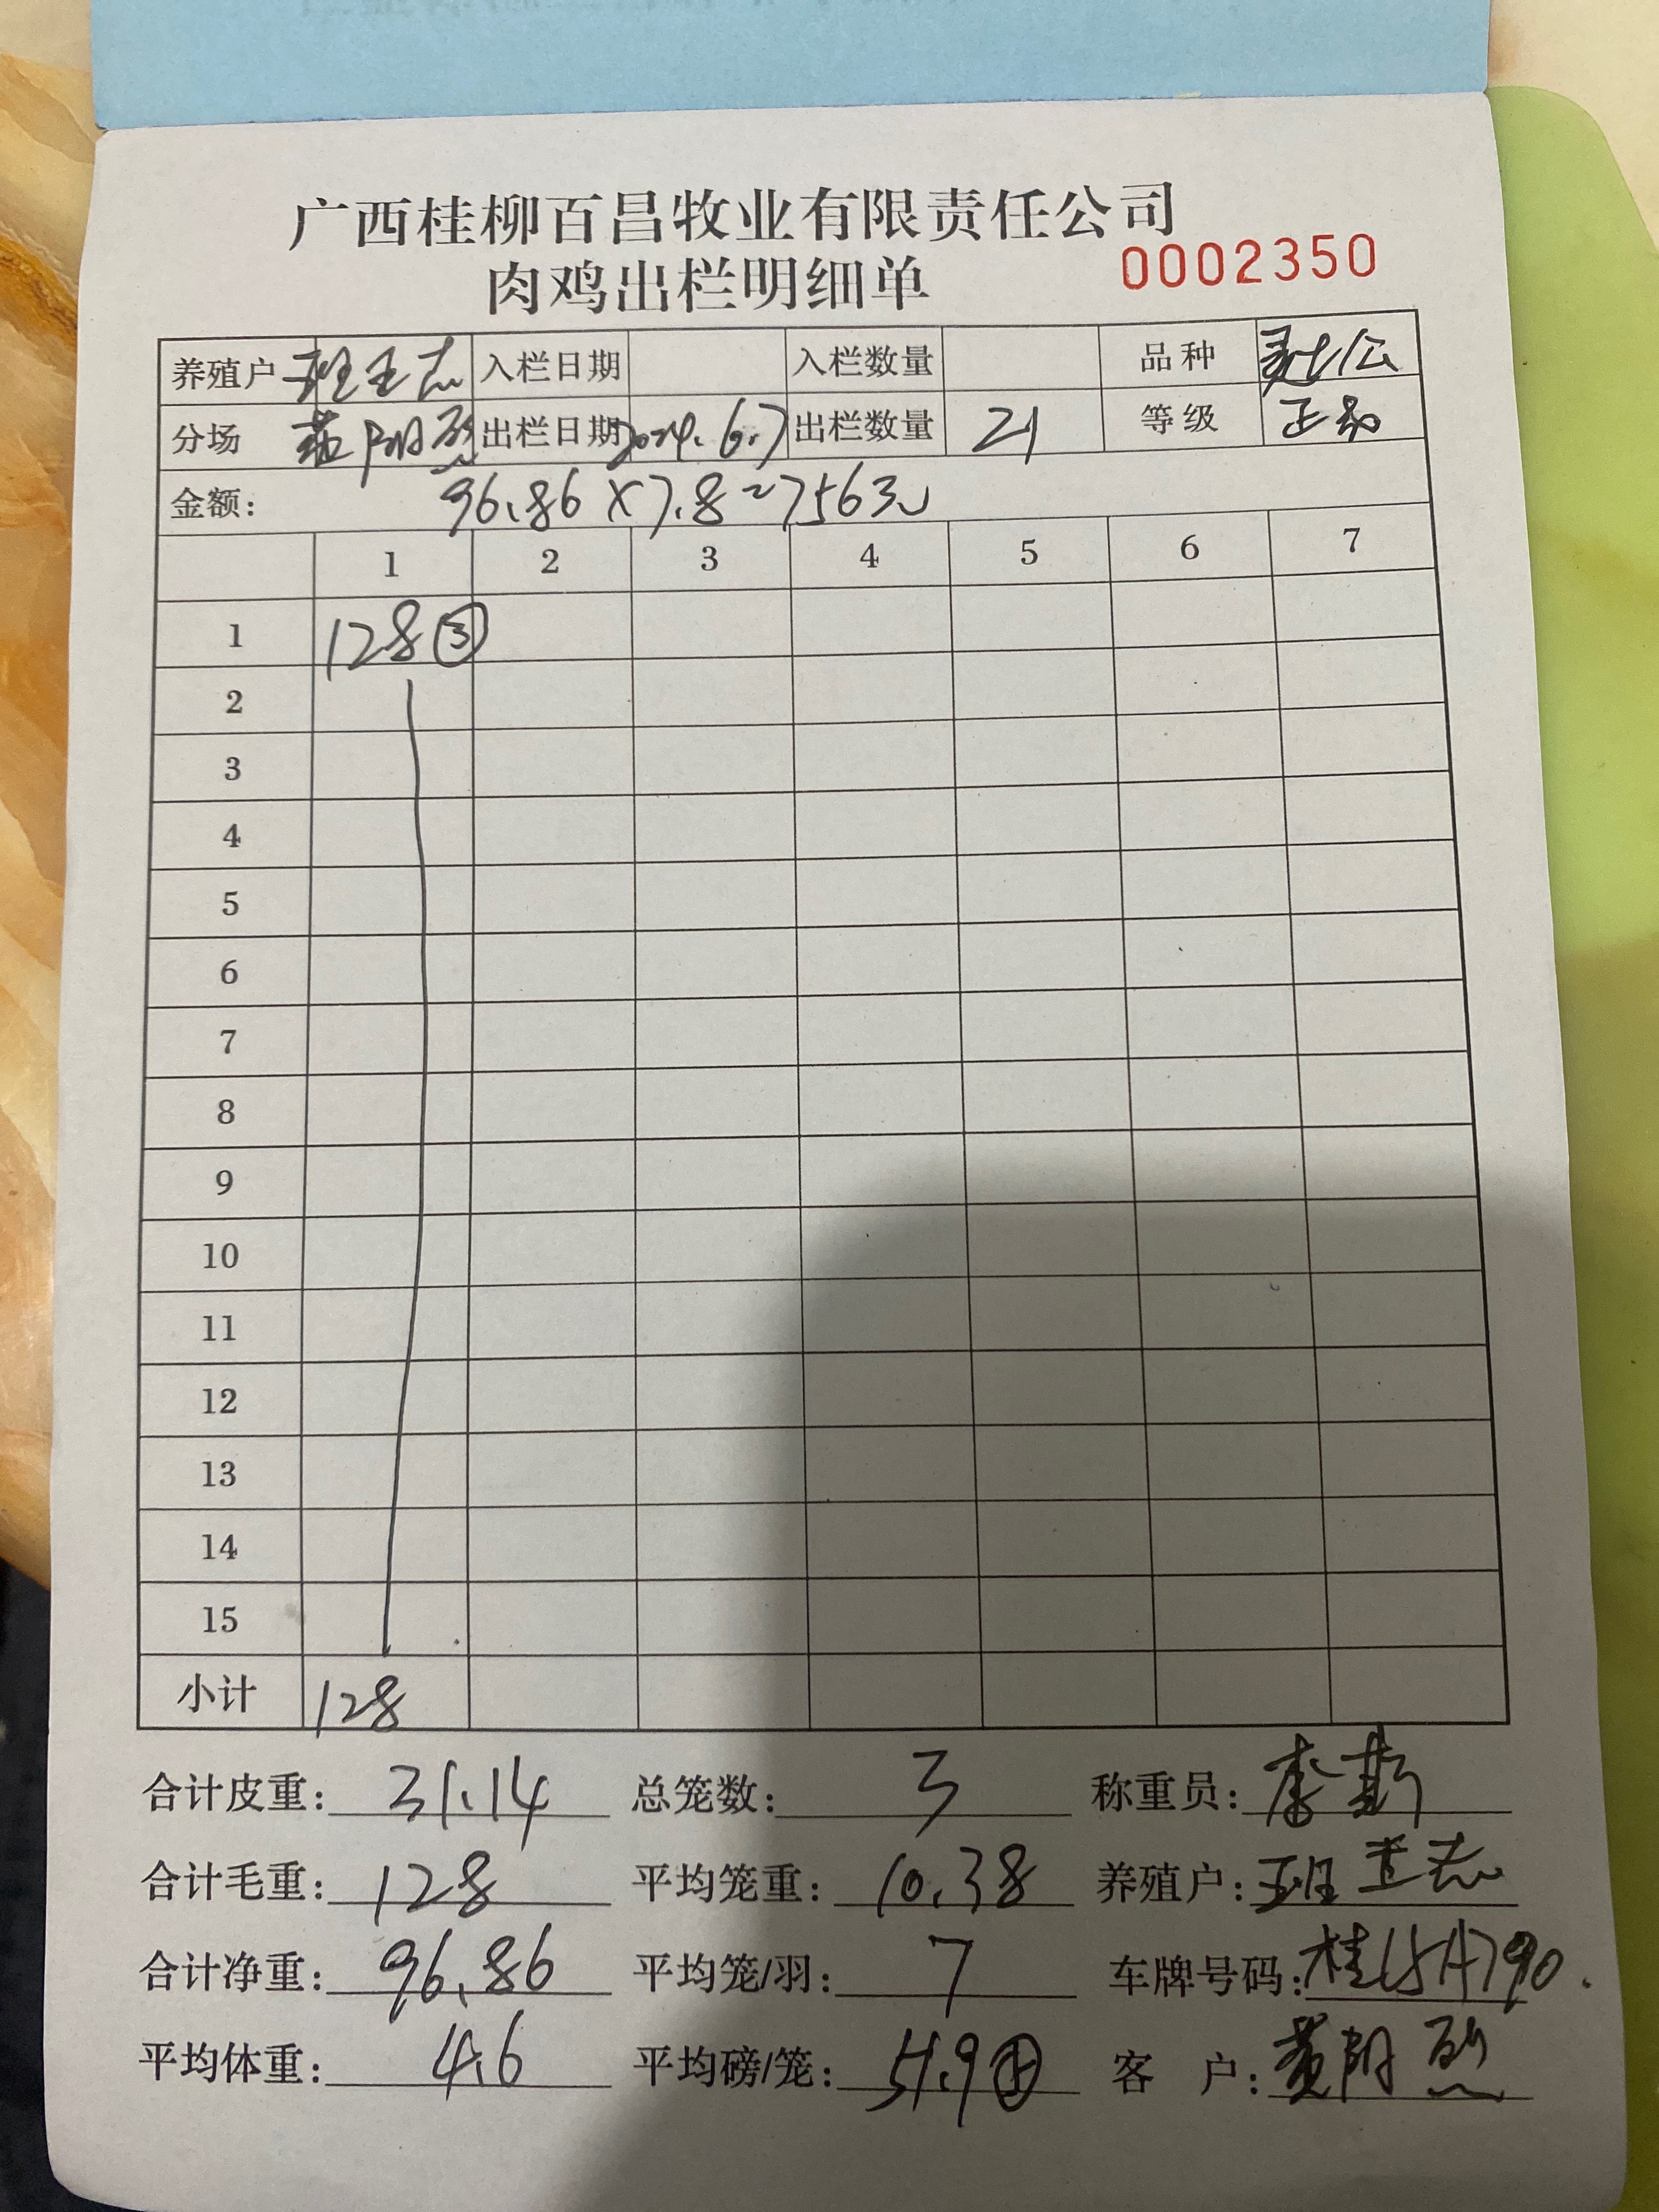 广西桂柳百昌牧业有限责任公司
肉鸡出栏明细单 0002350
养殖户 班 志 入栏日期 入栏数量 品种 公
分场 黄 烈 出栏日期 2024.6.7 出栏数量 21 等级 正品
金额: 96.86×7.8=7563
1 2 3 4 5 6 7
1 128③
2
3
4
5
6
7
8
9
10
11
12
13
14
15
小计 128
合计皮重: 31.14 总笼数: 3 称重员: 李
合计毛重: 128 平均笼重: 10.38 养殖户: 班 志
合计净重: 96.86 平均笼/羽: 7 车牌号码: 桂
平均体重: 4.6 平均磅/笼: 客 户: 黄 烈